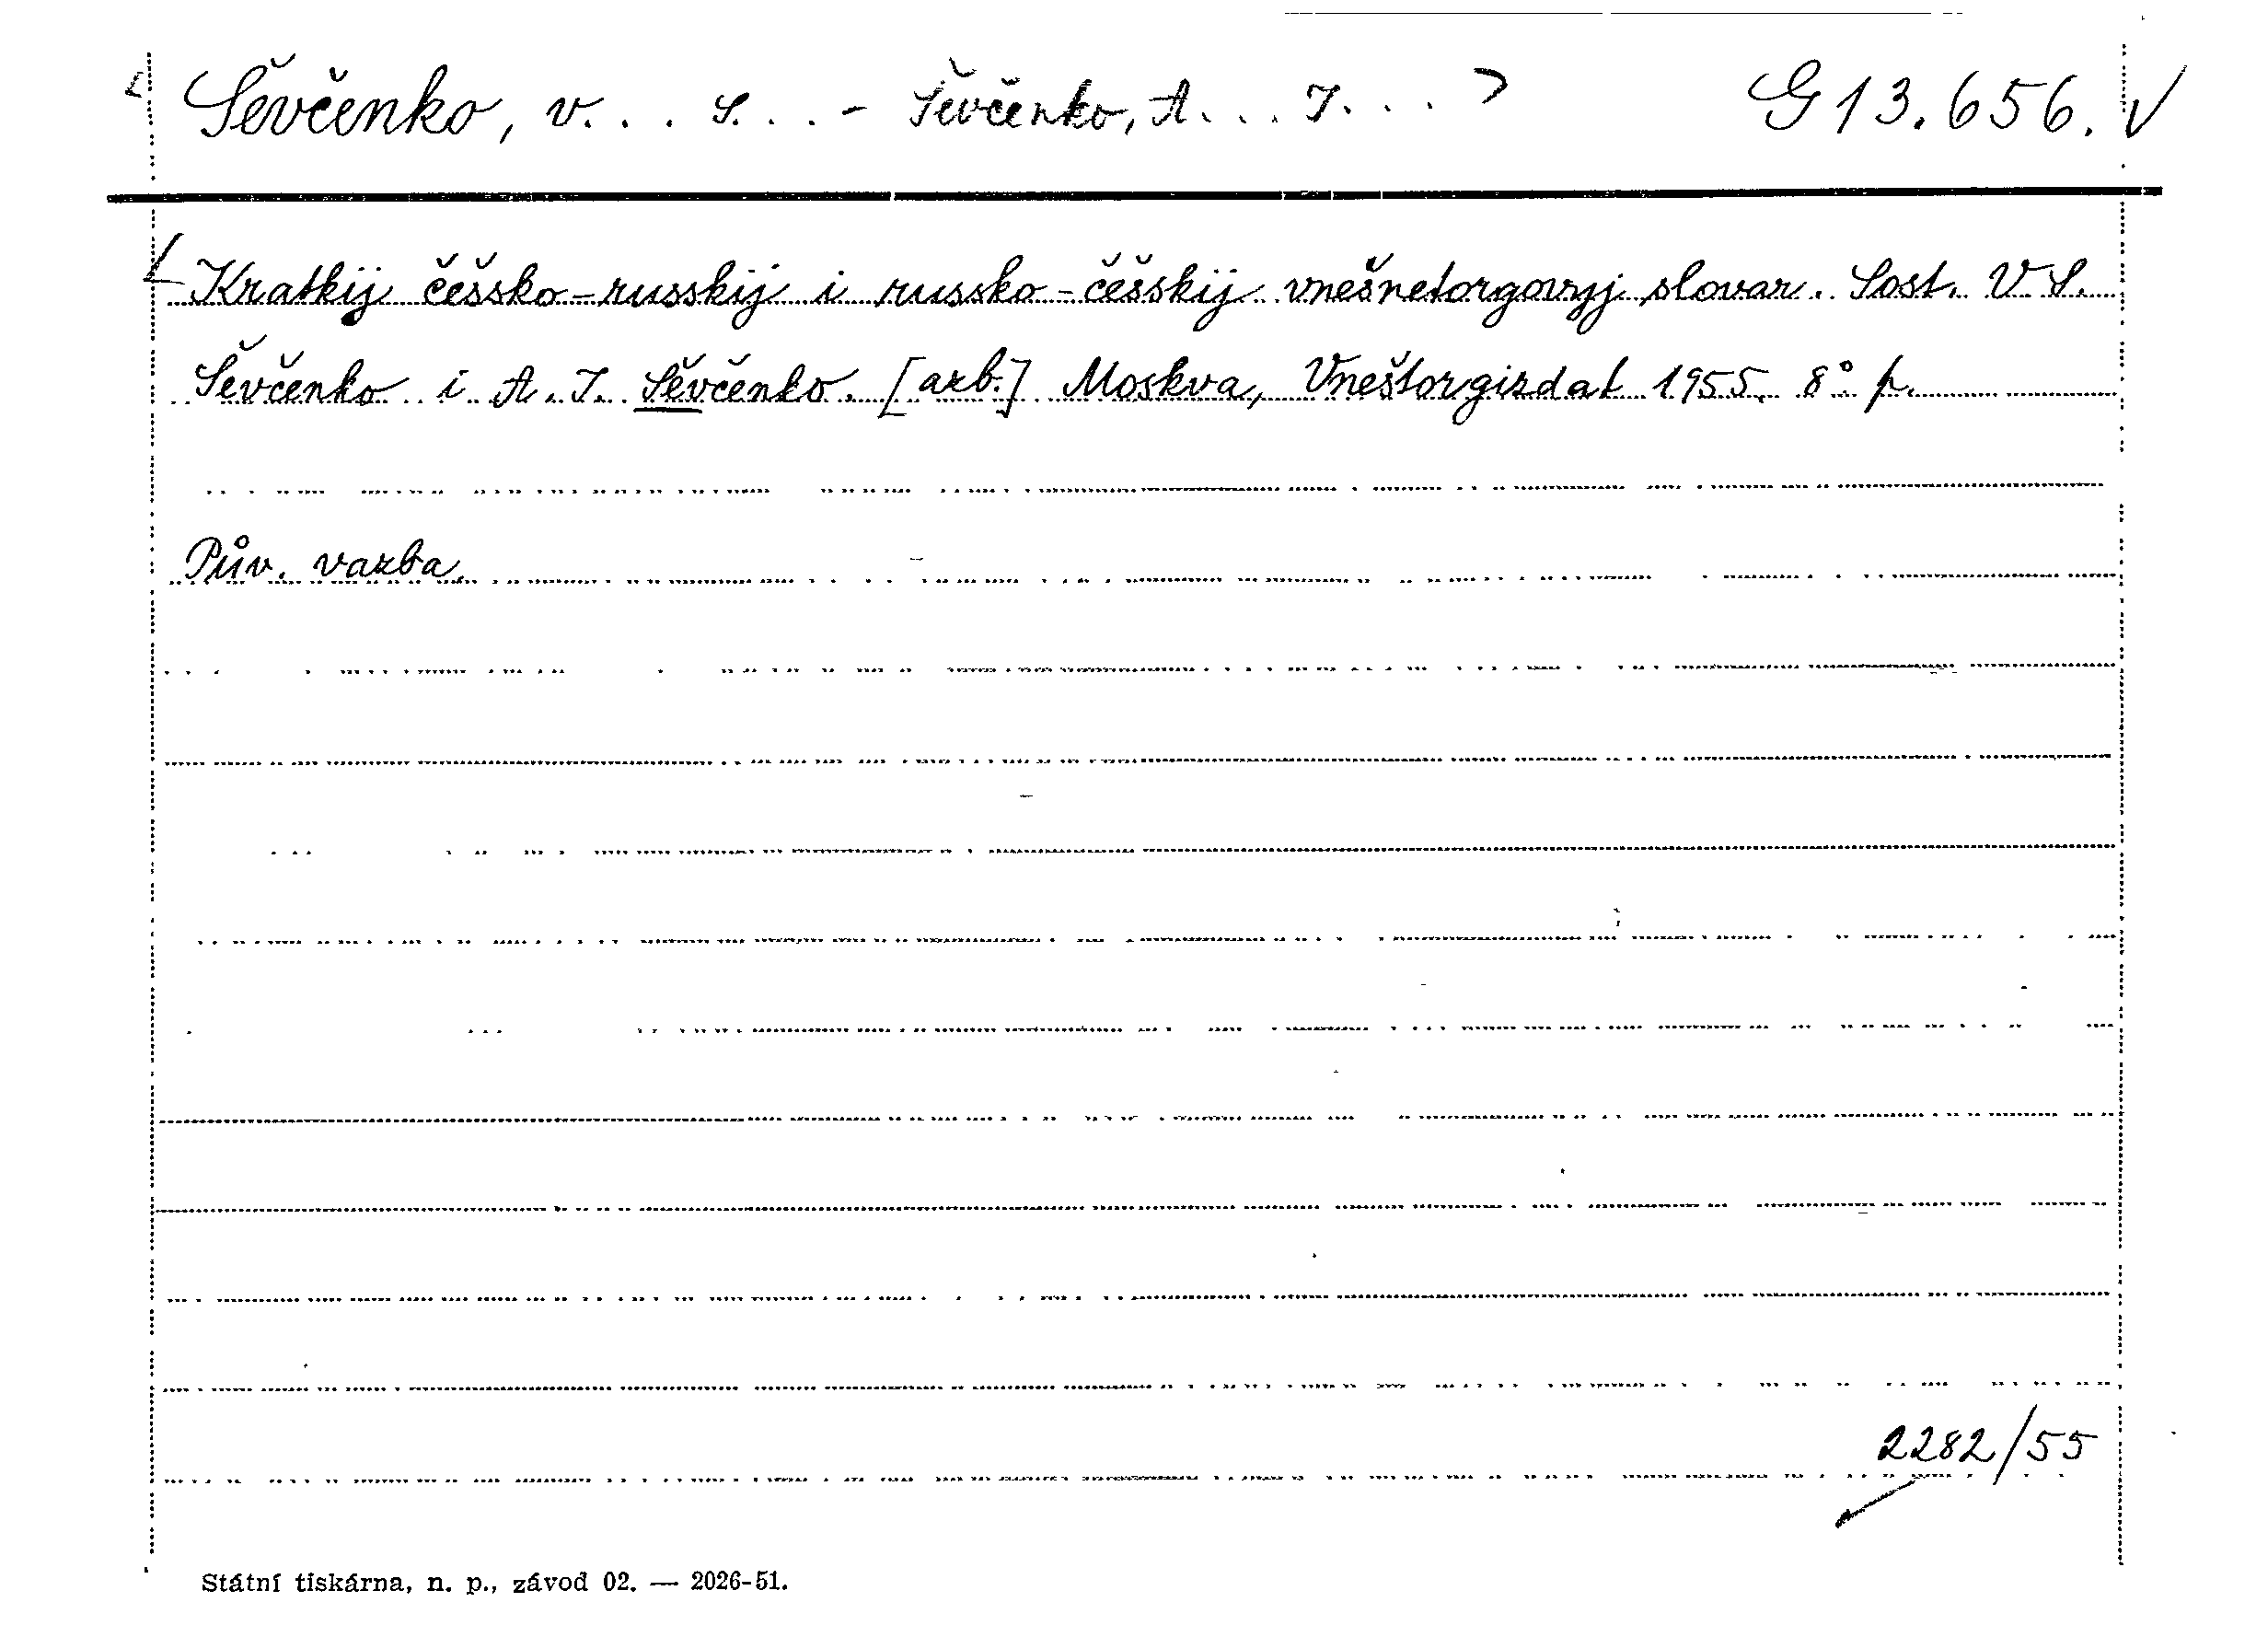 Ševčenko, V... S... - Ševčenko, A... I... > G 13.656.
Kratkij češsko-russkij i russko-češskij vnešnetorgovyj slovar. Sost. V. S.
Ševčenko i A. I. Ševčenko. [azb.] Moskva, Vneštorgizdat 1955. 8° p.
Pův. vazba.
2282/55
Státní tiskárna, n. p., závod 02. — 2026-51.